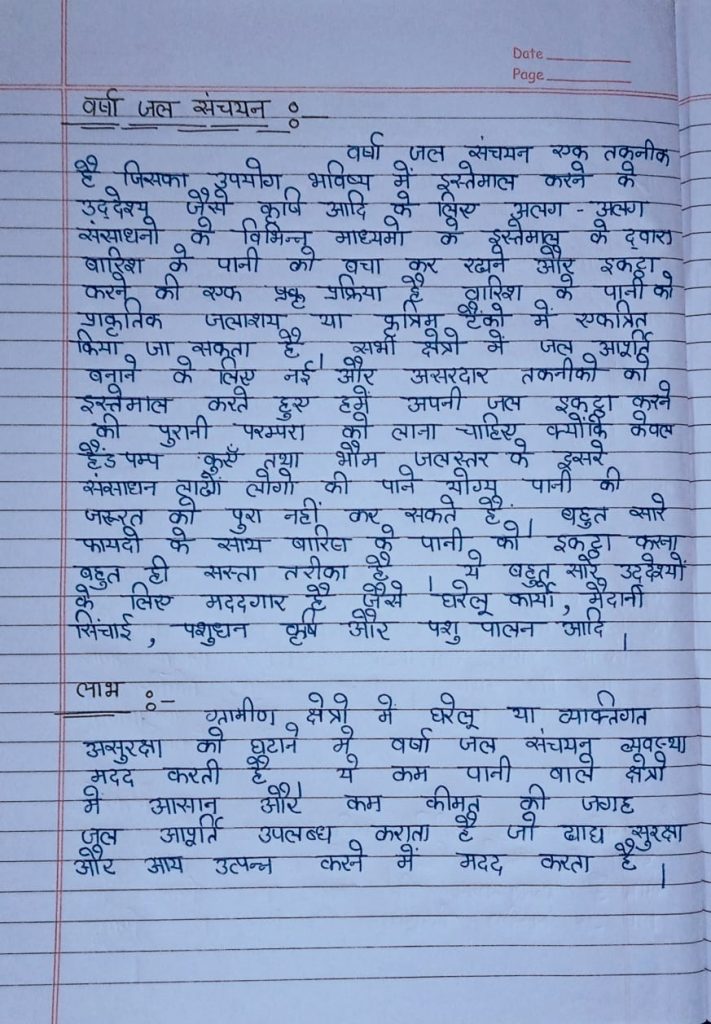 Date
Page
वर्षा जल संचयन :-
वर्षा जल संचयन एक तकनीक
है जिसका उपयोग भविष्य में इस्तेमाल करने के
उद्देश्य जैसे कृषि आदि के लिए अलग - अलग
संसाधनो के विभिन्न माध्यमो के इस्तेमाल के द्वारा
बारिश के पानी को बचा कर रखने और इकट्ठा
करने की एक प्रक्रिया है बारिश के पानी को
प्राकृतिक जलाशय या कृत्रिम टैंको में एकत्रित
किया जा सकता है। सभी क्षेत्रो में जल आपूर्ति
बनाने के लिए नई और असरदार तकनीको को
इस्तेमाल करते हुए हमें अपनी जल इकट्ठा करने
की पुरानी परम्परा को लाना चाहिए क्योंकि केवल
हैंड पम्प कुएँ तथा भौम जलस्तर के इसरे
संसाधन लाखों लोगो की पाने योग्य पानी की
जरूरत को पुरा नहीं कर सकते हैं। बहुत सारे
फायदो के साथ बारिश के पानी को इकट्ठा करना
बहुत ही सस्ता तरीका है। ये बहुत सारे उद्देश्यों
के लिए मददगार है जैसे घरेलू कार्यो, मैदानी
सिंचाई, पशुधन कृषि और पशु पालन आदि।
लाभ :-
ग्रामीण क्षेत्रो में घरेलू या व्यक्तिगत
असुरक्षा को घटाने मे वर्षा जल संचयन व्यवस्था
मदद करती है। ये कम पानी वाले क्षेत्रो
में आसान और कम कीमत की जगह
जल आपूर्ति उपलब्ध कराता है जो खाद्य सुरक्षा
और आय उत्पन्न करने में मदद करता है।